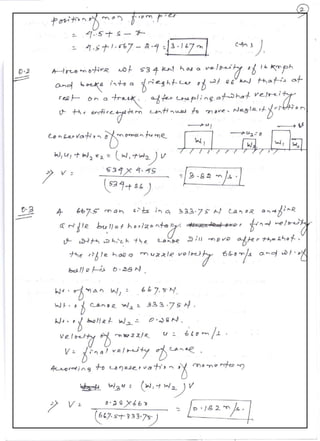 ②
position of man from pier
= 9.5 + s - x
= 9.5 + 1.567 - 8.9 = 3.167 m (Ans).
Q.2 A locomotive wt 534 kN has a velocity of 16 kmph
and backs into a freight car of wt 86 kN that is at
rest on a track. after coupling at what velocity
v the entire system continues to move. Neglect friction
Conservation of momentum,
W₁u₁ + W₂ × 2 = (W₁ + W₂) V
→u₁ →u₂=0 →V
W₁ W₂ W₁ W₂
⇒ V = 534 × 4.45 / (534 + 86) = 3.82 m/s.
Q.3 A 667.5 man sits in a 333.75 N canoe and fire
a rifle bullet horizontaly. find velocity
v with which the canoe will move after the shot.
the rifle has a muzzle velocity 660 m/s and wt. of
bullet is 0.28 N.
Wt. of man W₁ = 667.5 N.
Wt. of canoe W₂ = 333.75 N.
Wt. of bullet W₃ = 0.28 N.
velocity of muzzle u = 660 m/s.
V = final velocity of canoe.
According to conservation of momentum
W₃u = (W₁ + W₂) V
⇒ V = 0.28 × 660 / (667.5 + 333.75) = 0.182 m/s.